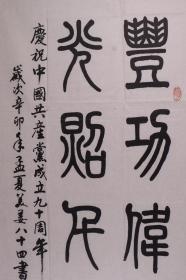 豐功偉
光照千
慶祝中國共産黨成立九十周年
歲次辛卯年孟夏美姜八十四書